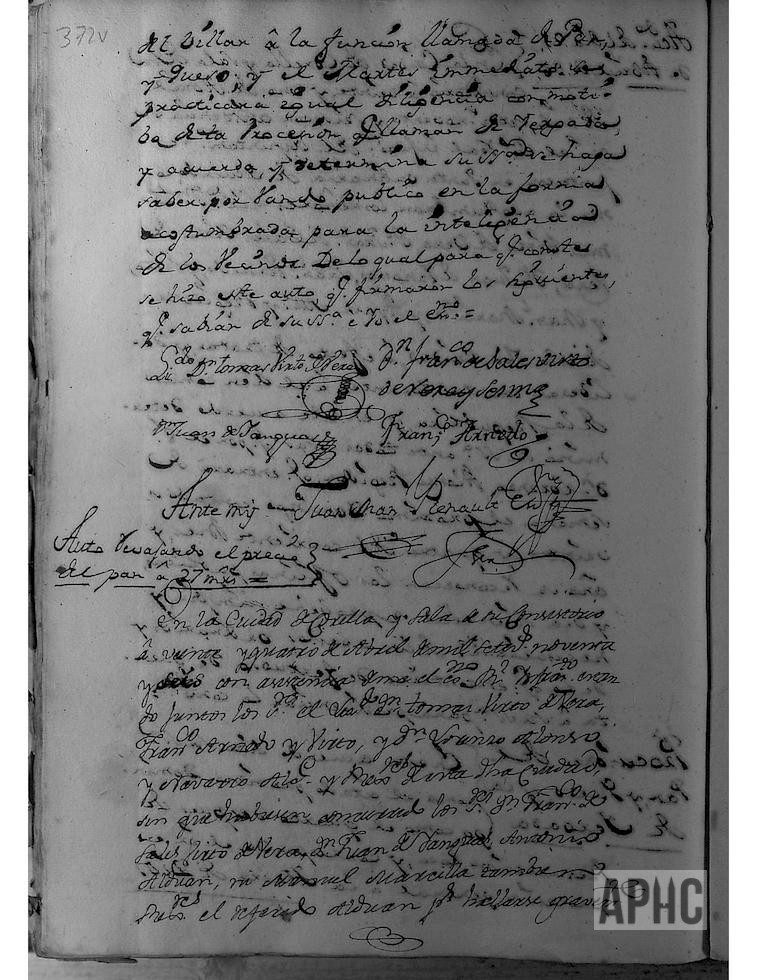 372v
del Villar â la función llamada de Pan,
y Queso, y el Martes immediato se
practicará igual diligencia con moti-
bo de la Procesión q.e llaman de
y acuerda, y determina su ss.a se haga
saber por Vando publico en la forma
acostumbrada para la inteligencia
de los Vecinos De lo qual para q.e conste
se hizo este auto, q.e firmaron los siguientes,
q.e sabían de su ss.a e Yo el Ess.no =
Lizdo Dn tomas Virto de Vera
Dn Fran.co de Sales Virto
de Vera y
Dn Juan de Sanguas
Fran.co Arnedo
Ante my Juan Renault
Auto revajando el precio
del pan â 27 mrs =
en la Ciudad de Corella y Sala de su Consistorio
â veinte y quatro de Abril de mil Setez.s noventa
y seis con asistencia de mi el ess.no
do juntos los S.res el Liz.do Dn tomas Virto de Vera,
Fran.co Arnedo y Virto, y dn Lorenzo Alonso
y Navarro Alc.e y Rexid.res de esta dha Ciudad,
sin que hubiesen concurrido los S.res Dn Fran.co de
Sales Virto de Vera, Dn Juan de Sanguas, Antonio
Alduan, ni Manuel Marcilla tambien
Rex.res el referido Alduan p.r hallarse
APHC